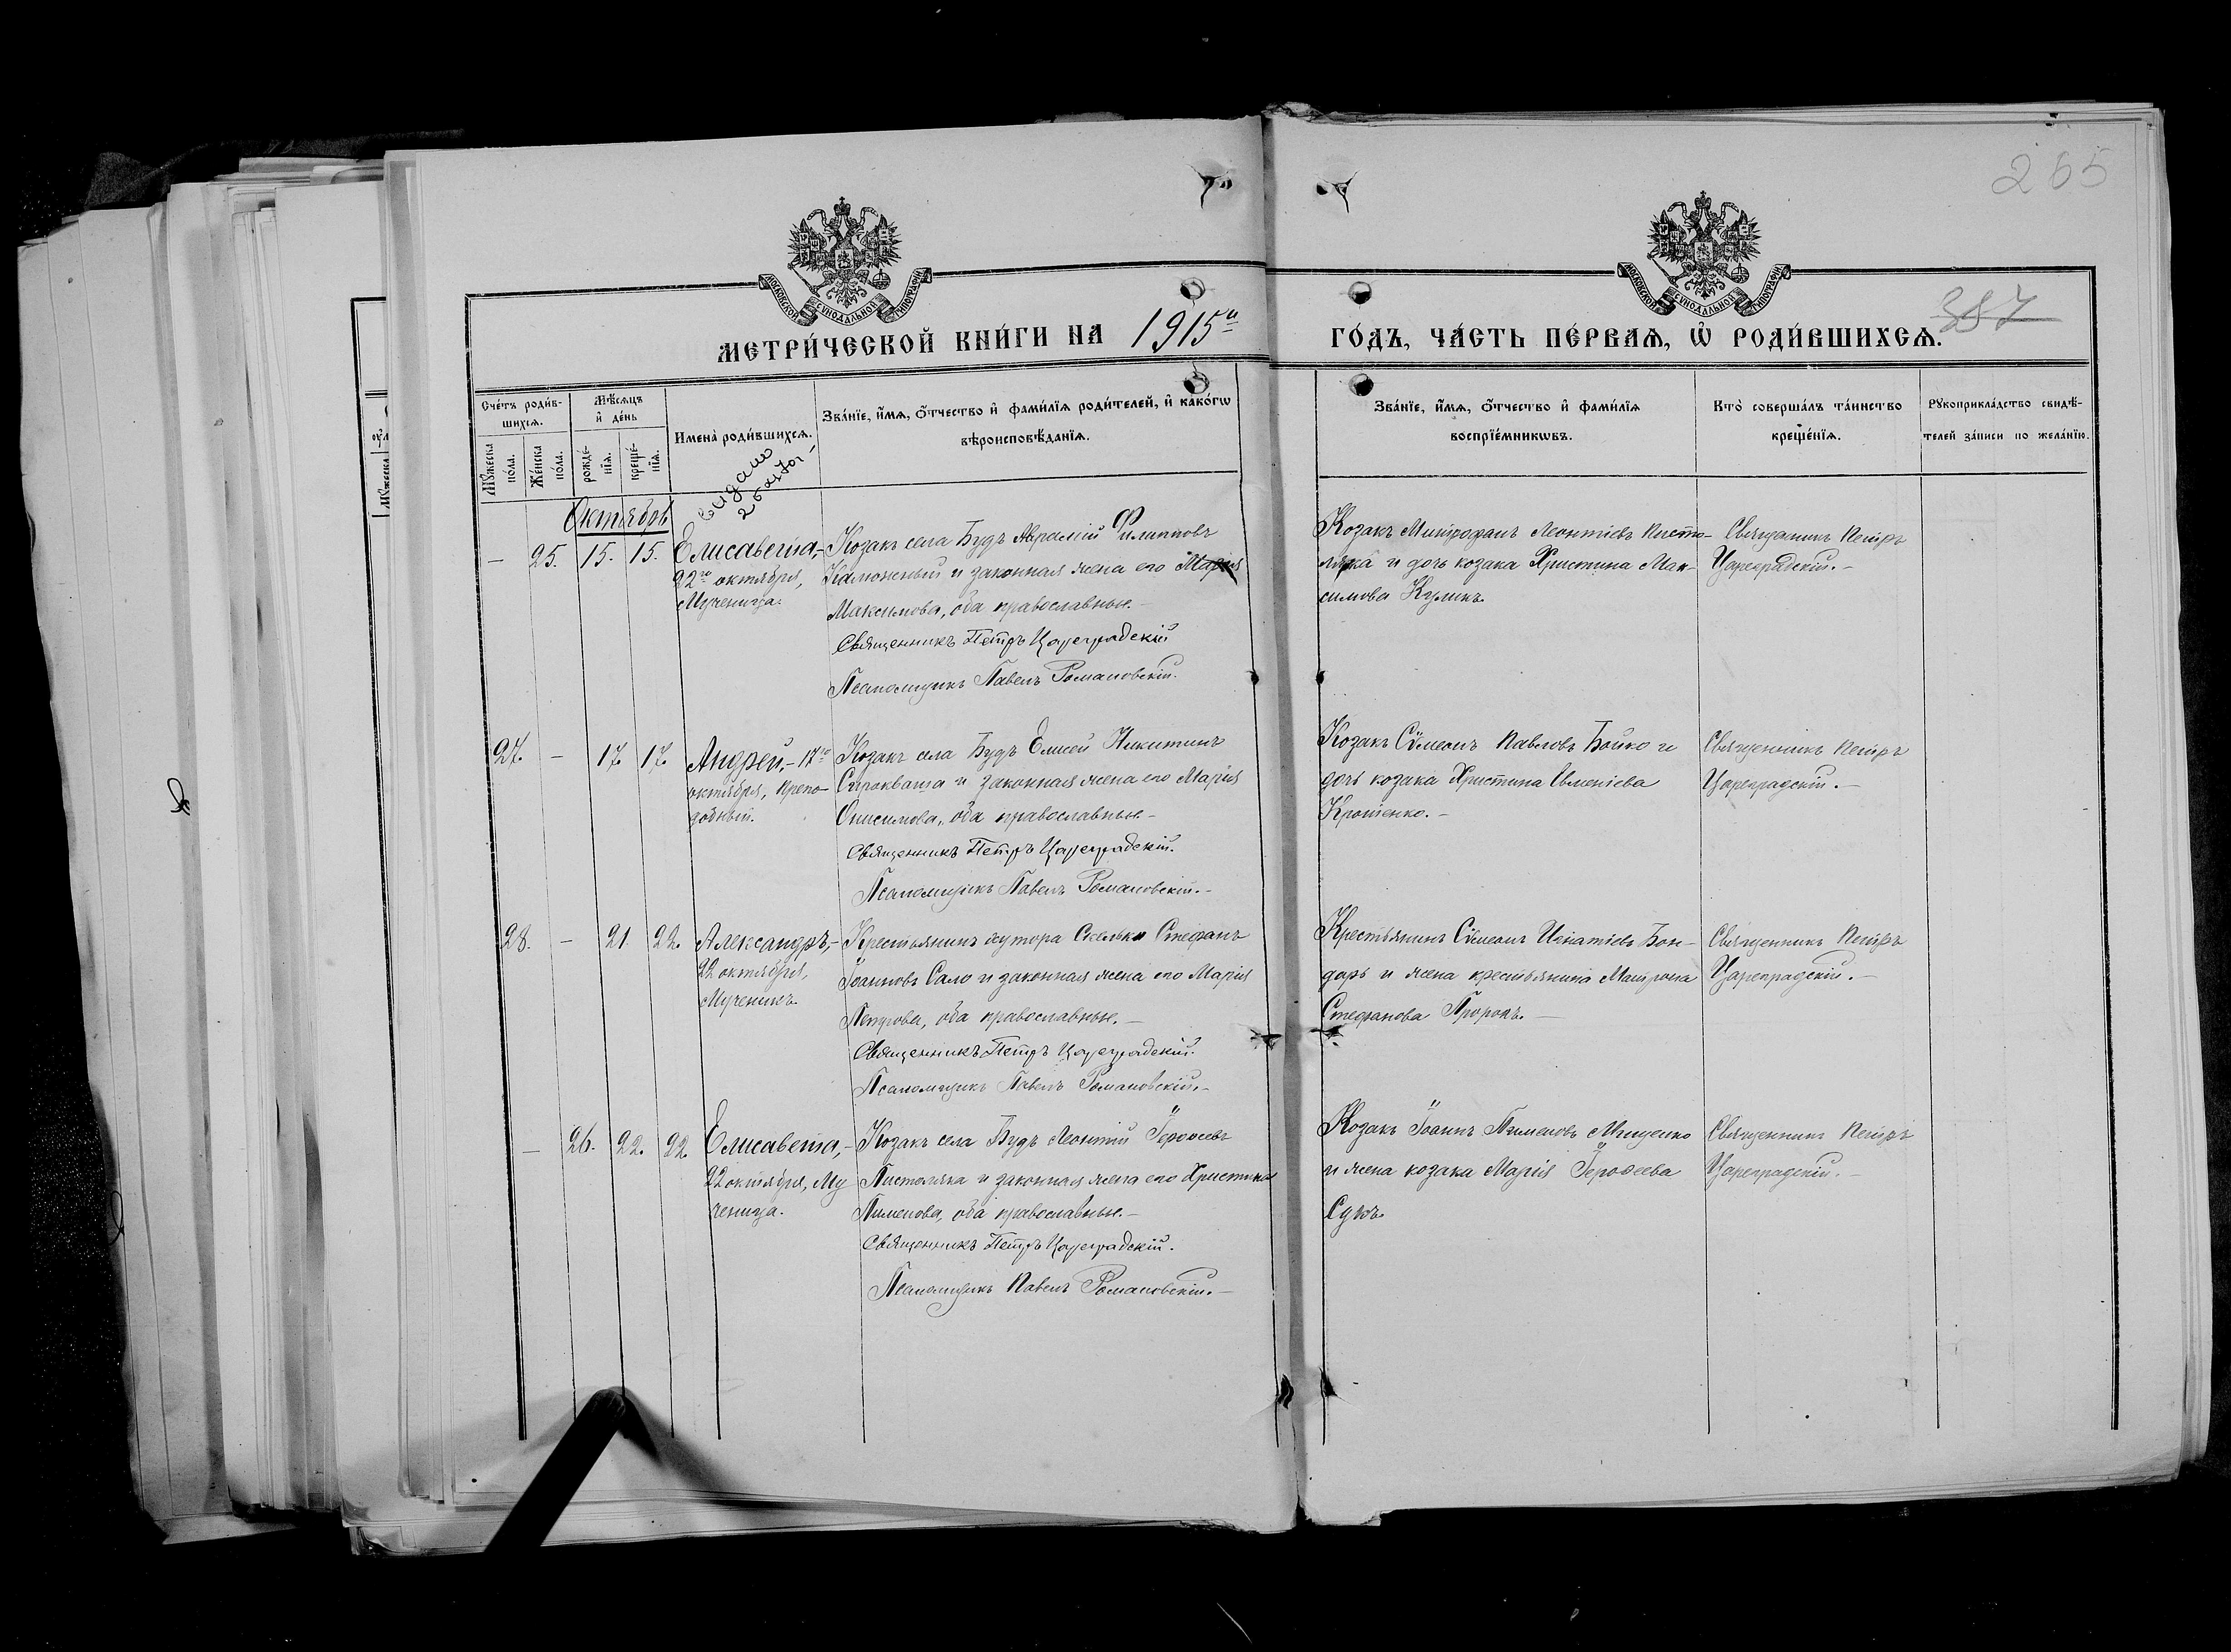 265
МОСКОВСКОЙ СѴНОДАЛЬНОЙ ТИПОГРАФІИ
МОСКОВСКОЙ СѴНОДАЛЬНОЙ ТИПОГРАФІИ
387
МЕТРИ́ЧЕСКОЙ КНИ́ГИ НА 1915й ГО́ДЪ, ЧА́СТЬ ПЕ́РВАѦ, Ѡ҆ РОДИ́ВШИХСѦ.
Сче́тъ роди́в-
шихсѧ.
Мѣ́сѧцъ
и҆ де́нь
Мꙋ́жеска
по́ла.
Же́нска
по́ла.
рожде́-
нїѧ.
креще́-
нїѧ.
Имена̀ роди́вшихсѧ.
Зва́нїе, и҆́мѧ, ѻ҆́тчество и҆ фами́лїѧ роди́телей, и҆ како́гѡ
вѣроисповѣ́данїѧ.
Зва́нїе, и҆́мѧ, ѻ҆́тчество и҆ фами́лїѧ
воспрїе́мникѡвъ.
Кто̀ соверша́лъ та́инство
креще́нїѧ.
Рꙋкоприкла́дство свидѣ́-
телей за́писи по жела́нїю.
видано
Октябрь
— 25. 15. 15. Елисавета,-
22го октября,
Мученица.
Козакъ села Будъ Авраамій Филипповъ
и законная жена его Марія
Максимова, оба православные.—
Священникъ Петръ Цареградскій
Псаломщикъ Павелъ Романовскій.
Козакъ Митрофанъ Леонтіевъ Писто-
ляка и дочь козака Христина Мак-
симова Куликъ.
Священникъ Петръ
Цареградскій.—
27. — 17. 17. Андрей,- 17го
октября, препо-
добный.
Козакъ села Будъ Елисей Никитинъ
Сыроваша и законная жена его Марія
Онисимова, оба православные.—
Священникъ Петръ Цареградскій.
Псаломщикъ Павелъ Романовскій.—
Козакъ Сѵмеонъ Павловъ Бойко и
дочь козака Христина
Священникъ Петръ
Цареградскій.—
28. — 21. 22. Александръ,-
22 октября,
Мученикъ.
Крестьянинъ хутора Стефанъ
Іоанновъ Сало и законная жена его Марія
Петрова, оба православные.—
Священникъ Петръ Цареградскій.
Псаломщикъ Павелъ Романовскій.—
Крестьянинъ Сѵмеонъ Игнатіевъ Бон-
дарь и жена крестьянина Матрона
Стефанова Пророкъ.—
Священникъ Петръ
Цареградскій.—
— 26. 22. 22. Елисавета,-
22 октября, Му
ченица.
Козакъ села Будъ Леонтій Іероѳеевъ
Пистоляка и законная жена его Христина
Пименова, оба православные.—
Священникъ Петръ Цареградскій.
Псаломщикъ Павелъ Романовскій.—
Козакъ Іоаннъ Пименовъ Мищенко
и жена козака Марія Іероѳеева
Священникъ Петръ
Цареградскій.—